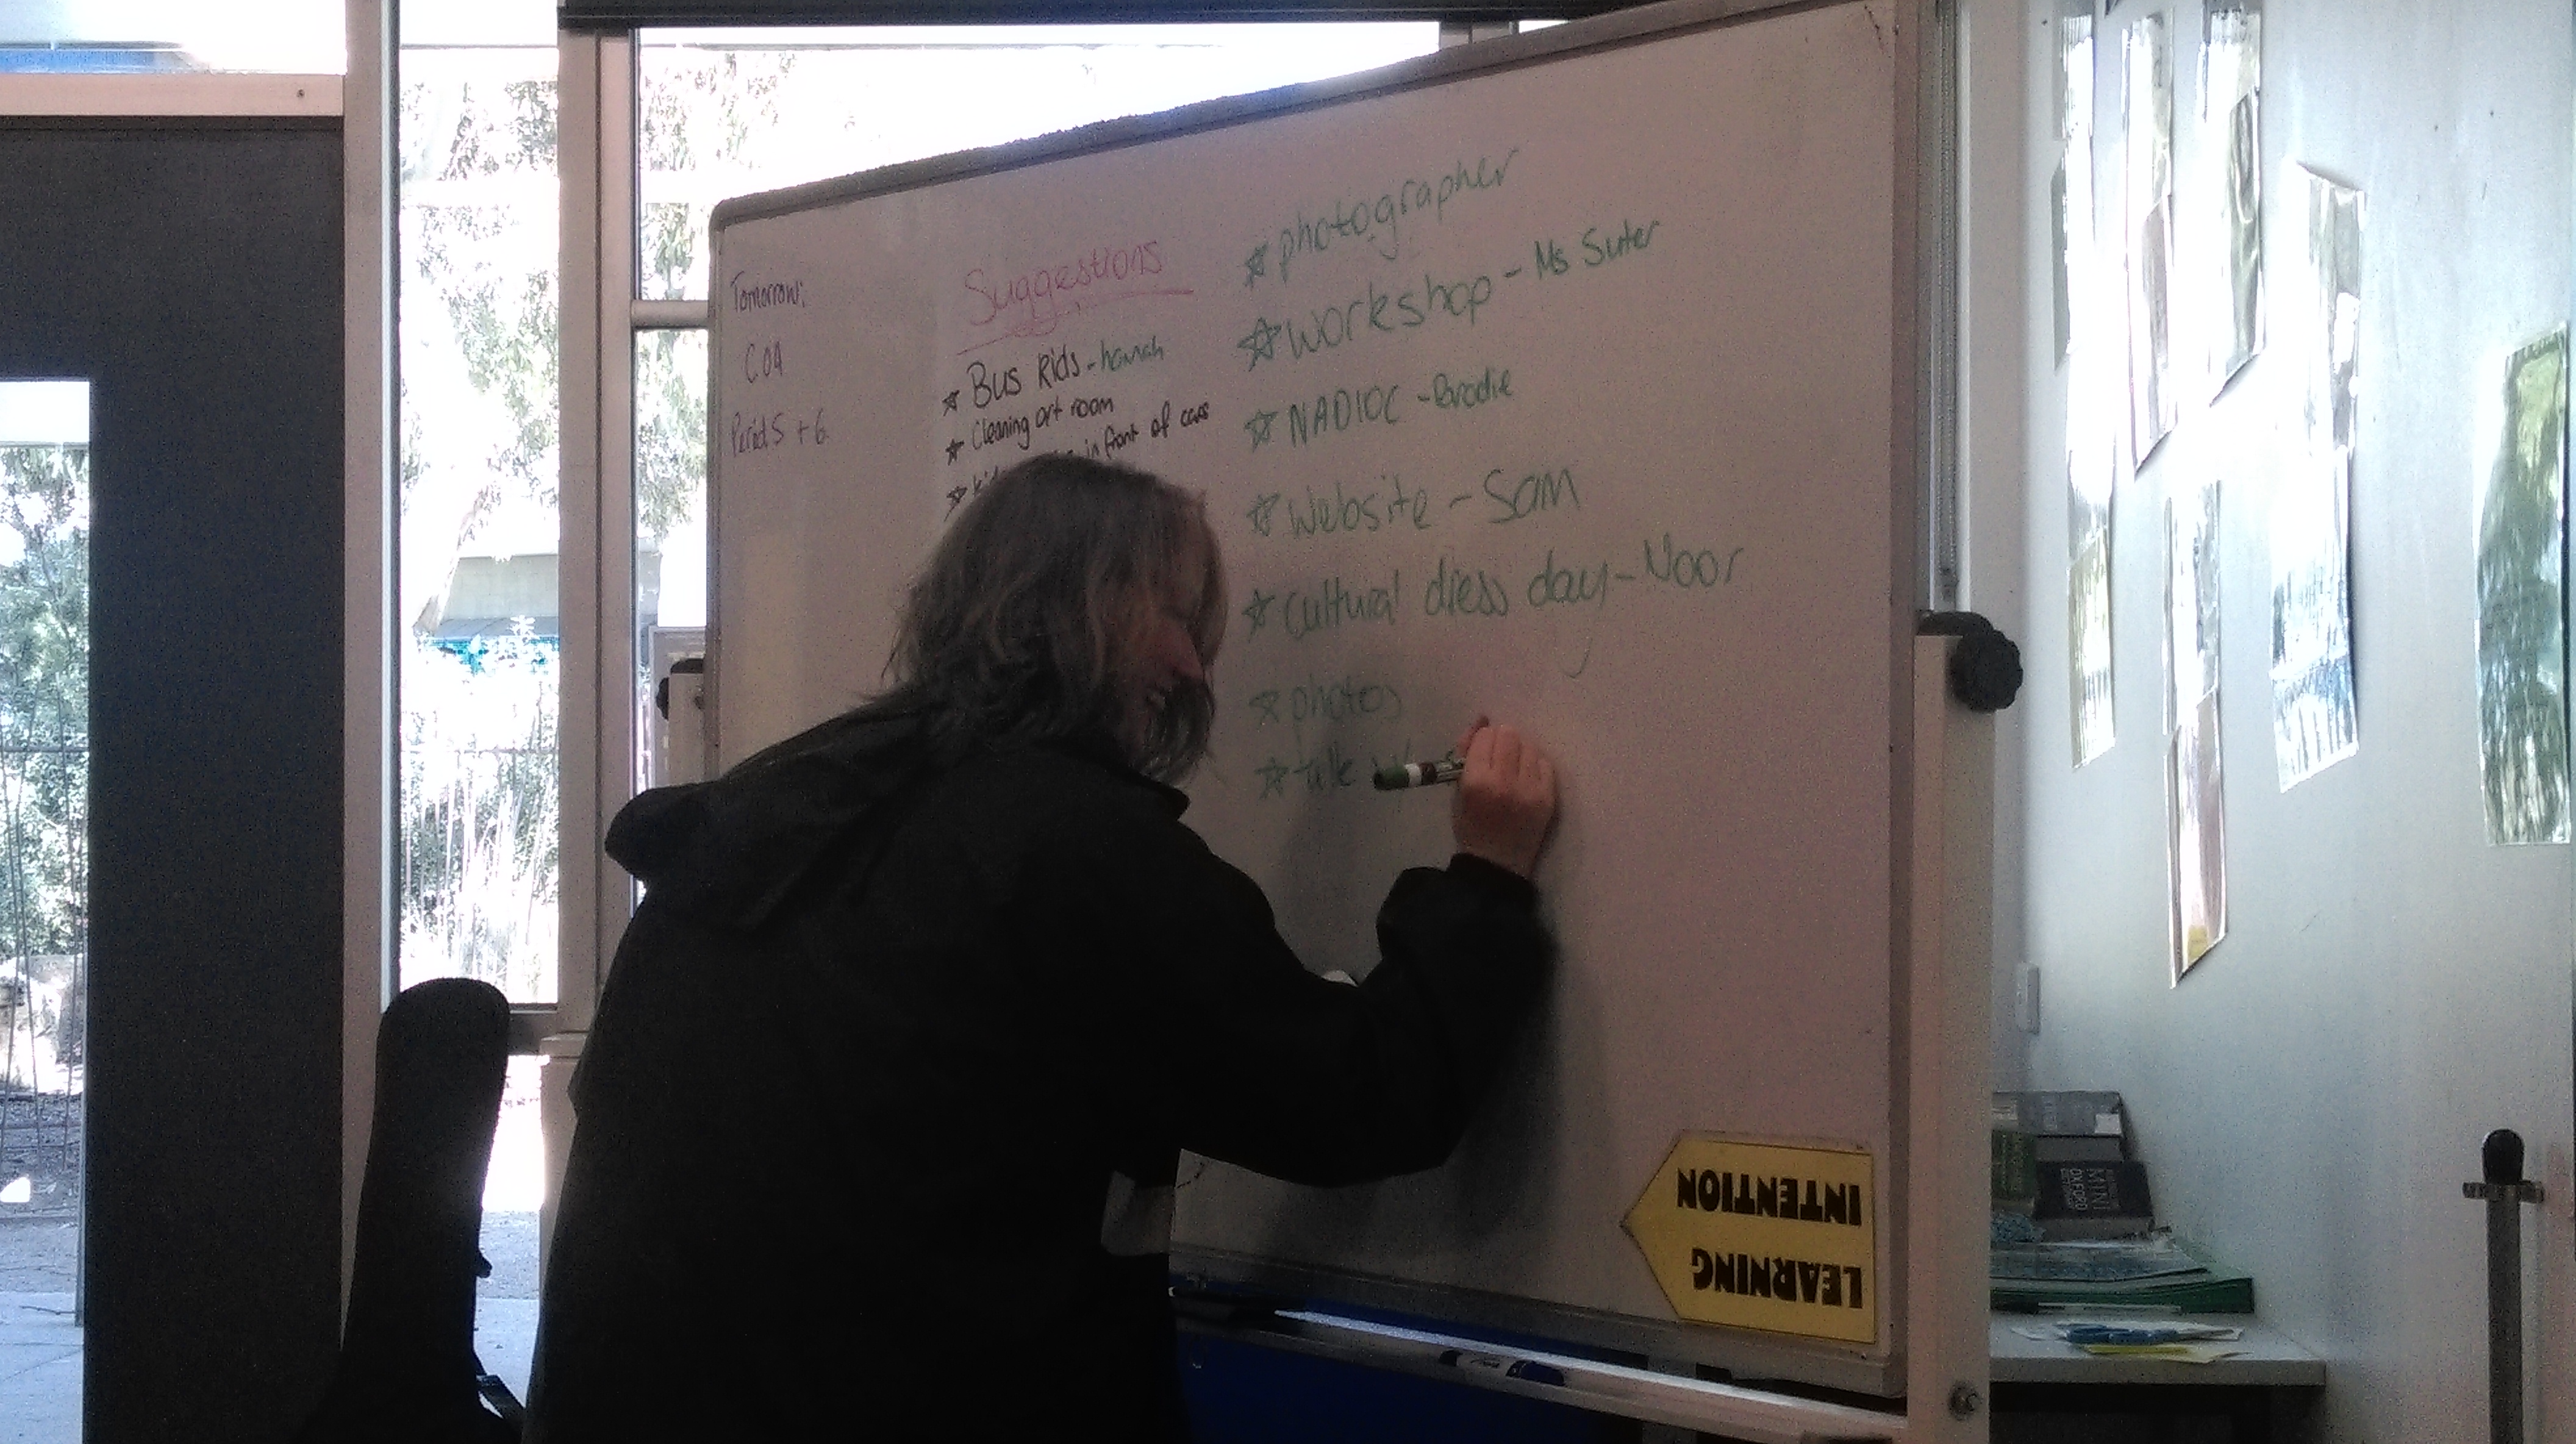 Tomorrow:
C09
Period 5 + 6
Suggestions
Bus kids - hannah
Cleaning art room
in front of cars
photographer
Workshop - Ms Suter
NADIOC - Brodie
Website - Sam
Cultural dress day - Noor
photos
talk
LEARNING
INTENTION
MINI
OXFORD